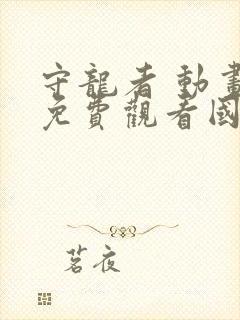 守龍者 動畫
免費觀看國
茗夜